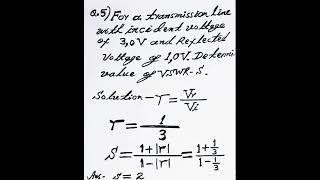 Q.5) For a transmission line
with incident voltage
of 3,0V and Reflected
voltage of 1,0V. Determi
value of VSWR-S.
Solution - Γ = Vr/Vi
Γ = 1/3
S = 1+|Γ|/1-|Γ| = 1+1/3/1-1/3
Ans- S=2